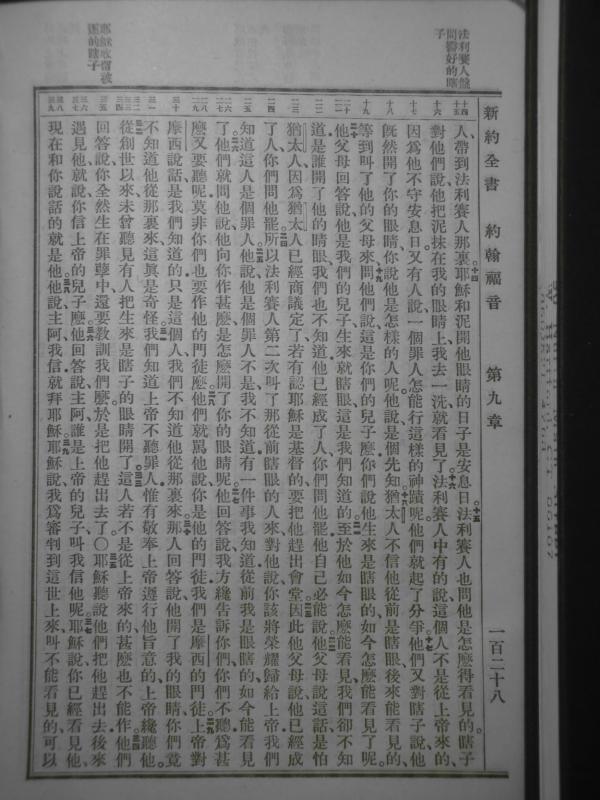 新約全書　約翰福音　第九章　一百二十八
法利賽人盤
問醫好的瞎
子
耶穌收留被
逐的瞎子
人帶到法利賽人那裏、耶穌和泥開他眼睛的日子是安息日、法利賽人也問他是怎麽得看見的、瞎子
對他們說、他把泥抹在我的眼睛上、我去一洗、就看見了。法利賽人中有的說、這個人不是從上帝來的、
因爲他不守安息日、又有人說、一個罪人怎能行這樣的神蹟呢、他們就起了分爭。他們又對瞎子說、他
旣然開了你的眼睛、你說他是怎樣的人呢、他說、是個先知。猶太人不信他從前是瞎眼、後來能看見的、
等到叫了他的父母來、問他們說、這是你們的兒子麽、你們說他生來是瞎眼的、如今怎麽能看見了呢。
他父母回答說、他是我們的兒子、生來就瞎眼、這是我們知道的、至於他如今怎麽能看見、我們卻不知
道、是誰開了他的眼睛、我們也不知道、他已經成了人、你們問他罷、他自己必能說。他父母說這話、是怕
猶太人、因爲猶太人已經商議定了、若有認耶穌是基督的、要把他趕出會堂、因此他父母說、他已經成
了人、你們問他罷。所以法利賽人第二次叫了那從前瞎眼的人來、對他說、你該將榮耀歸給上帝、我們
知道這人是個罪人、他說、他是個罪人不是、我不知道、有一件事我知道、從前我是眼瞎的、如今能看見
了。他們就問他說、他向你作甚麽、是怎麽開了你的眼睛呢、他回答說、我方纔告訴你們、你們不聽、爲甚
麽又要聽呢、莫非你們也要作他的門徒麽。他們就罵他說、你是他的門徒、我們是摩西的門徒、上帝對
摩西說話、是我們知道的、只是這個人、我們不知道他從那裏來。那人回答說、他開了我的眼睛、你們竟
不知道他從那裏來、這眞是奇怪、我們知道上帝不聽罪人、惟有敬奉上帝、遵行他旨意的、上帝纔聽他。
從創世以來、未曾聽見有人把生來是瞎子的眼睛開了、這人若不是從上帝來的、甚麽也不能作。他們
回答說、你全然生在罪孽中、還要教訓我們麽、於是把他趕出去了。○耶穌聽說他們把他趕出去、後來
遇見他、就說、你信上帝的兒子麽、他回答說、主阿、誰是上帝的兒子、叫我信他呢、耶穌說、你已經看見他、
現在和你說話的就是他、他說、主阿、我信、就拜耶穌、耶穌說、我爲審判到這世上來、叫不能看見的、可以